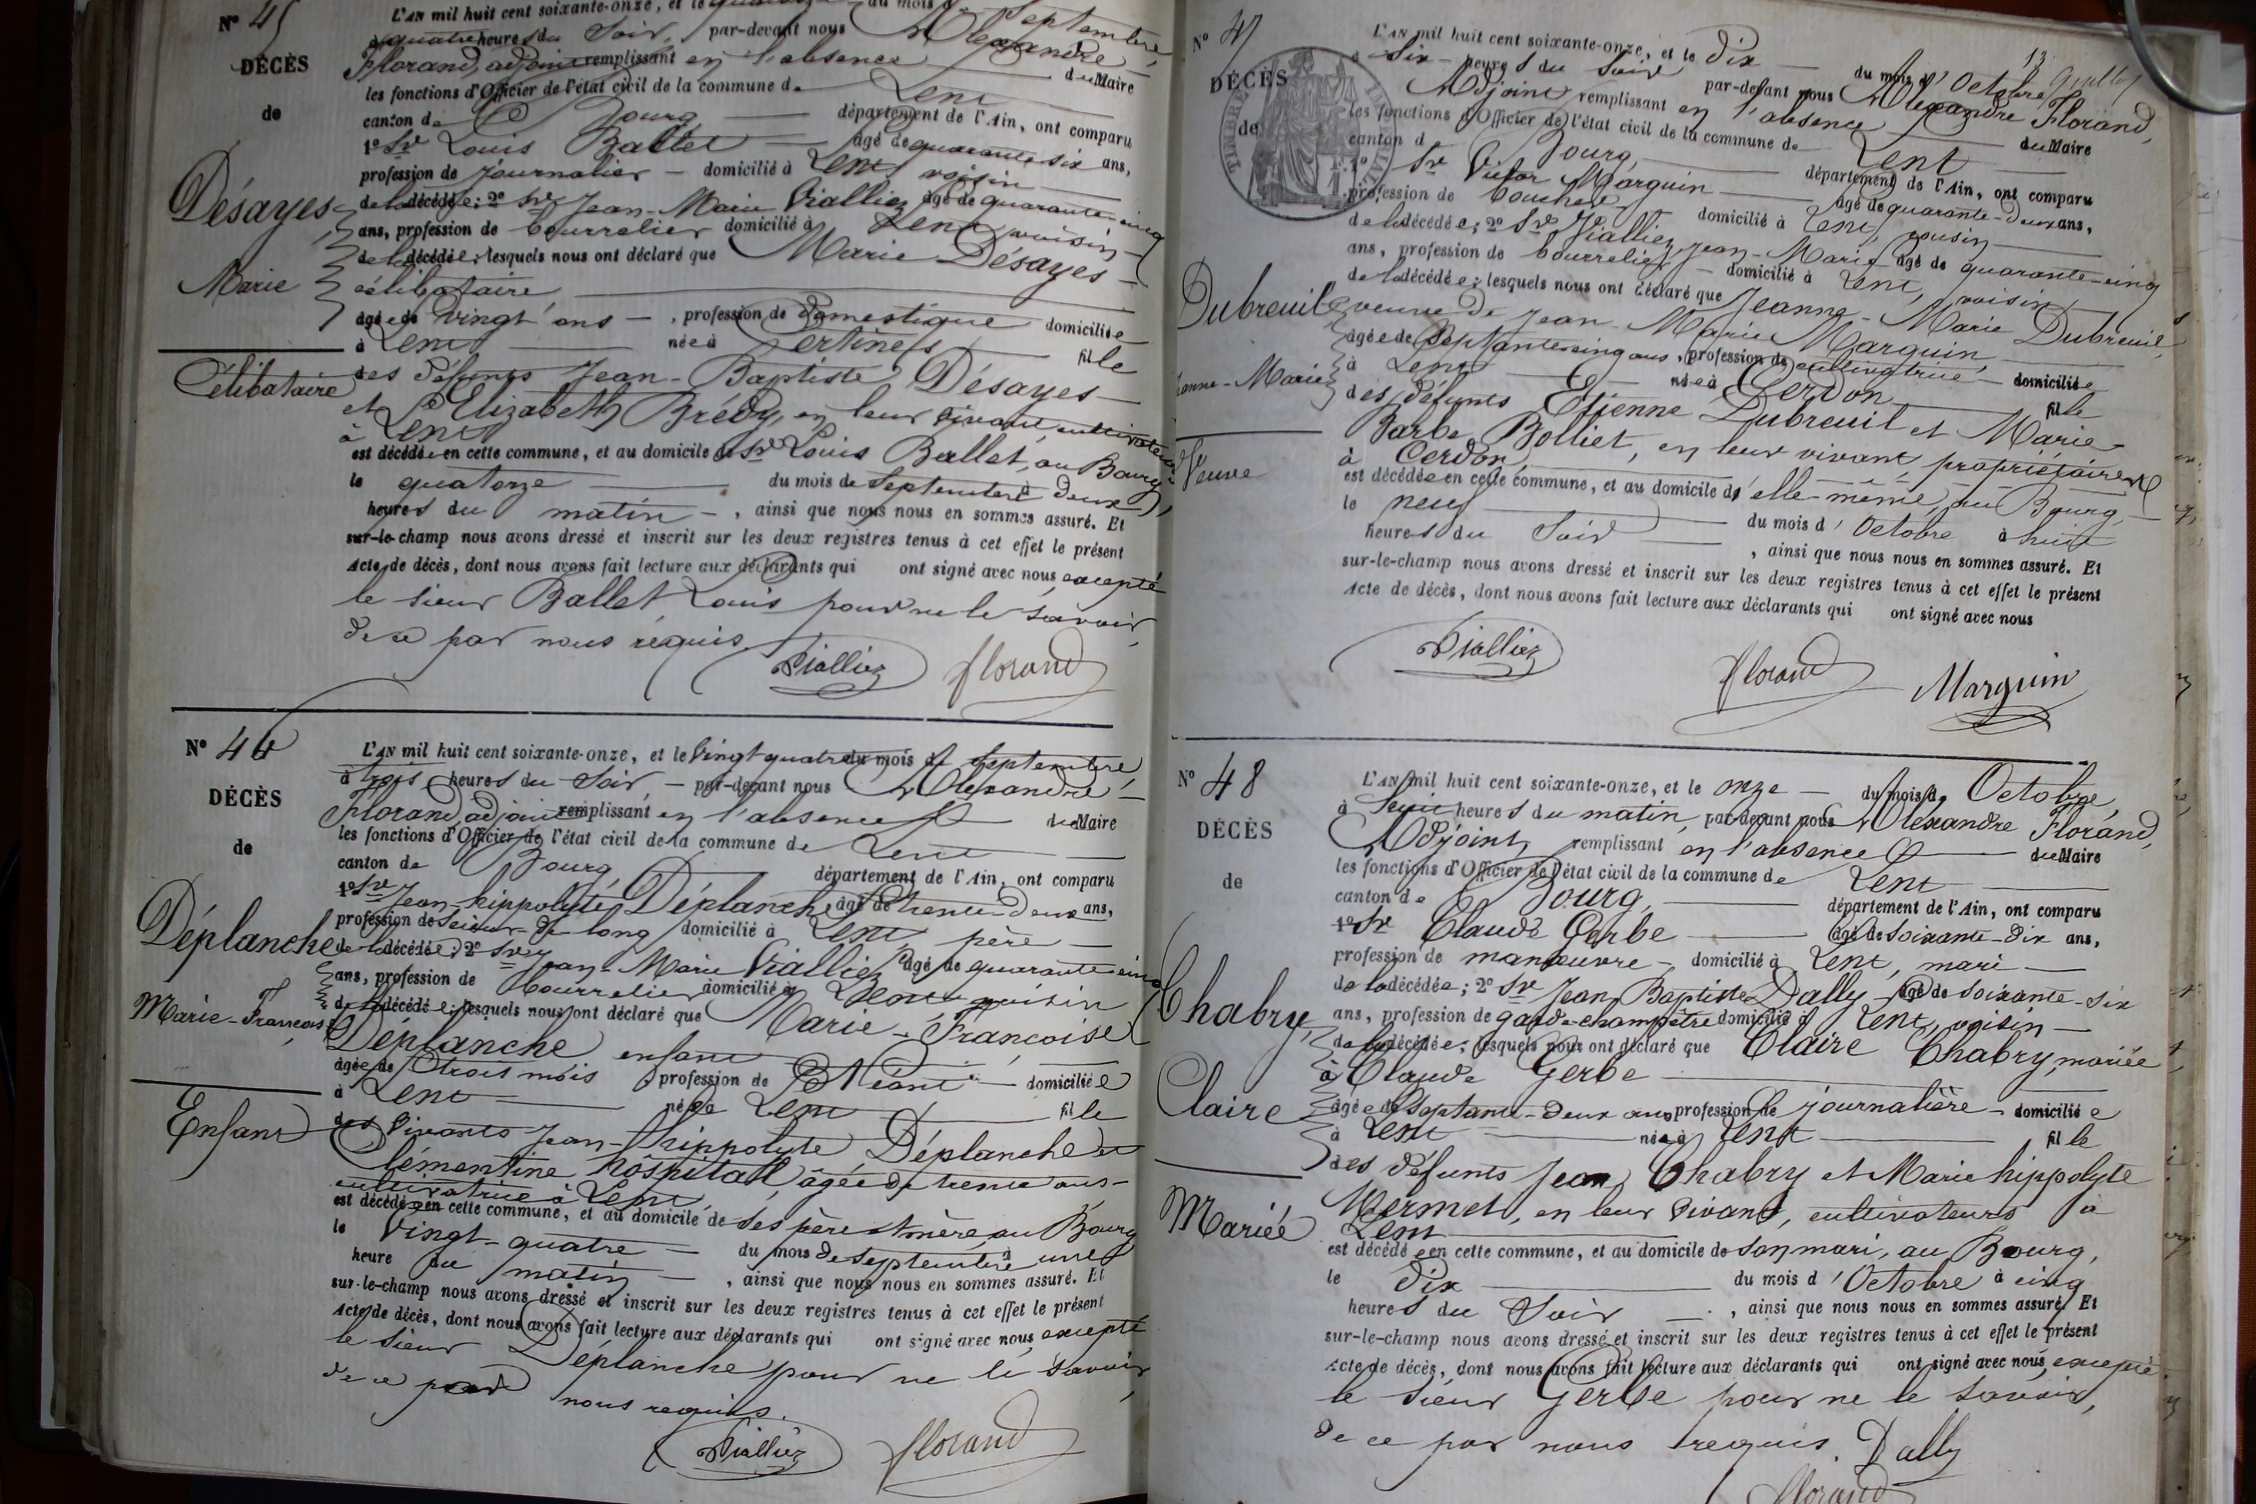 N° 45
DÉCÈS
de
Désayes
Marie
Célibataire
L'AN mil huit cent soixante-onze, et le quatorze du mois de Septembre,
à quatre heures du Soir, par-devant nous Alexandre
Florand, adjoint remplissant en l'absence du Maire
les fonctions d'Officier de l'état civil de la commune de Lent
canton de Bourg département de l'Ain, ont comparu
1° Sr Louis Ballet âgé de quarante-six ans,
profession de journalier domicilié à Lent, voisin
de la décédée; 2° Sr Jean-Marie Vialliez âgé de quarante-cinq
ans, profession de bourrelier domicilié à Lent, voisin
de la décédée; lesquels nous ont déclaré que Marie Désayes
célibataire
âgée de vingt ans, profession de domestique domiciliée
à Lent née à Certines fille
des défunts Jean-Baptiste Désayes
et de Elizabeth Brédy, en leur vivant cultivateurs
à Lent
est décédée en cette commune, et au domicile du Sr Louis Ballet, au Bourg,
le quatorze du mois de Septembre à deux
heures du matin, ainsi que nous nous en sommes assuré. Et
sur-le-champ nous avons dressé et inscrit sur les deux registres tenus à cet effet le présent
Acte de décès, dont nous avons fait lecture aux déclarants qui ont signé avec nous, excepté
le sieur Ballet Louis pour ne le savoir,
de ce par nous requis.
Vialliez Florand
N° 46
DÉCÈS
de
Déplanche
Marie-Françoise
Enfant
L'AN mil huit cent soixante-onze, et le vingt quatre du mois de Septembre,
à trois heures du Soir, par-devant nous Alexandre
Florand, adjoint remplissant en l'absence du Maire
les fonctions d'Officier de l'état civil de la commune de Lent
canton de Bourg, département de l'Ain, ont comparu
1° Sr Jean-hippolyte Déplanche, âgé de trente-deux ans,
profession de Scieur-de-long domicilié à Lent, père
de la décédée; 2° Sr Jean-Marie Vialliez âgé de quarante-cinq
ans, profession de bourrelier domicilié à Lent voisin
de la décédée; lesquels nous ont déclaré que Marie-Françoise
Déplanche enfant
âgée de trois mois profession de Néant domiciliée
à Lent née à Lent fille
des vivants Jean-hippolyte Déplanche et
Clémentine hôspital, âgée de trente ans
cultivatrice à Lent,
est décédée en cette commune, et au domicile de ses père et mère, au Bourg
le vingt-quatre du mois de Septembre à une
heure du matin, ainsi que nous nous en sommes assuré. Et
sur-le-champ nous avons dressé et inscrit sur les deux registres tenus à cet effet le présent
Acte de décès, dont nous avons fait lecture aux déclarants qui ont signé avec nous, excepté
le sieur Déplanche pour ne le savoir,
de ce par nous requis.
Vialliez Florand
13
N° 47
DÉCÈS
de
Dubreuil
Jeanne-Marie
Veuve
L'AN mil huit cent soixante-onze, et le dix du mois d'Octobre,
à Six heures du Soir par-devant nous Alexandre Florand,
Adjoint remplissant en l'absence du Maire
les fonctions d'Officier de l'état civil de la commune de Lent
canton de Bourg, département de l'Ain, ont comparu
1° Sr Victor Marguin âgé de quarante-deux ans,
profession de boucher domicilié à Lent, cousin
de la décédée; 2° Sr Vialliez Jean-Marie âgé de quarante-cinq
ans, profession de bourrelier domicilié à Lent, voisin
de la décédée; lesquels nous ont déclaré que Jeanne-Marie Dubreuil,
veuve de Jean-Marie Marguin,
âgée de Septante-cinq ans, profession de cultivatrice domiciliée
à Lent née à Cerdon fille
des défunts Etienne Dubreuil et Marie-
Barbe Bolliet, en leur vivant propriétaires
à Cerdon,
est décédée en cette commune, et au domicile d'elle-même, au Bourg,
le neuf du mois d'Octobre à huit
heures du Soir, ainsi que nous nous en sommes assuré. Et
sur-le-champ nous avons dressé et inscrit sur les deux registres tenus à cet effet le présent
Acte de décès, dont nous avons fait lecture aux déclarants qui ont signé avec nous
Vialliez Florand Marguin
N° 48
DÉCÈS
de
Chabry,
Claire
Mariée
L'AN mil huit cent soixante-onze, et le onze du mois d'Octobre,
à heures du matin, par-devant nous Alexandre Florand,
Adjoint, remplissant en l'absence du Maire
les fonctions d'Officier de l'état civil de la commune de Lent
canton de Bourg, département de l'Ain, ont comparu
1° Sr Claude Gerbe âgé de soixante-dix ans,
profession de manœuvre, domicilié à Lent, mari
de la décédée; 2° Sr Jean Baptiste Dally âgé de soixante-six
ans, profession de garde-champêtre domicilié à Lent, voisin
de la décédée; lesquels nous ont déclaré que Claire Chabry, mariée
à Claude Gerbe
âgée de Septante-deux ans profession de journalière domiciliée
à Lent née à Lent fille
des défunts Jean Chabry et Marie hippolyte
Mermet, en leur vivant, cultivateurs à
Lent
est décédée en cette commune, et au domicile de son mari, au Bourg,
le dix du mois d'Octobre à cinq
heures du Soir, ainsi que nous nous en sommes assuré. Et
sur-le-champ nous avons dressé et inscrit sur les deux registres tenus à cet effet le présent
Acte de décès, dont nous avons fait lecture aux déclarants qui ont signé avec nous, excepté
le sieur Gerbe pour ne le savoir,
de ce par nous requis. Dally
Florand